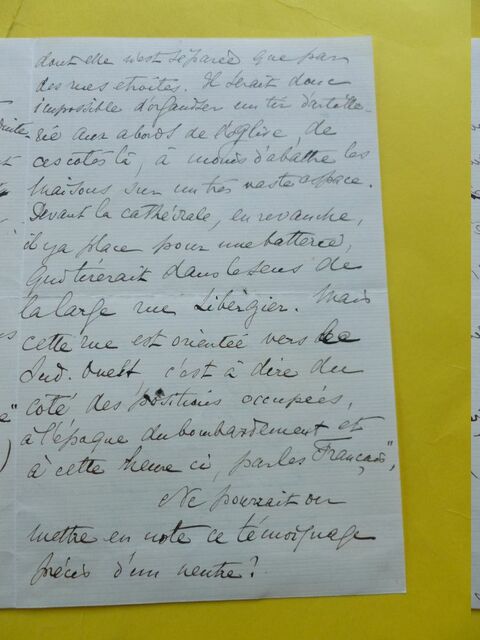 dont elle n'est séparée que par
des rues étroites. Il serait donc
impossible d'organiser un tir d'artille-
rie aux abords de l'église, de
ces côtés là, à moins d'abattre les
maisons sur un très vaste espace.
Devant la cathédrale, en revanche,
il y a place pour une batterie,
qui tirerait dans le sens de
la large rue Libergier. Mais
cette rue est orientée vers le
Sud-Ouest c'est à dire du
côté des positions occupées,
à l'époque du bombardement et
à cette heure ci, par les Français",
Ne pourrait on
mettre en note ce témoignage
précis d'un neutre?